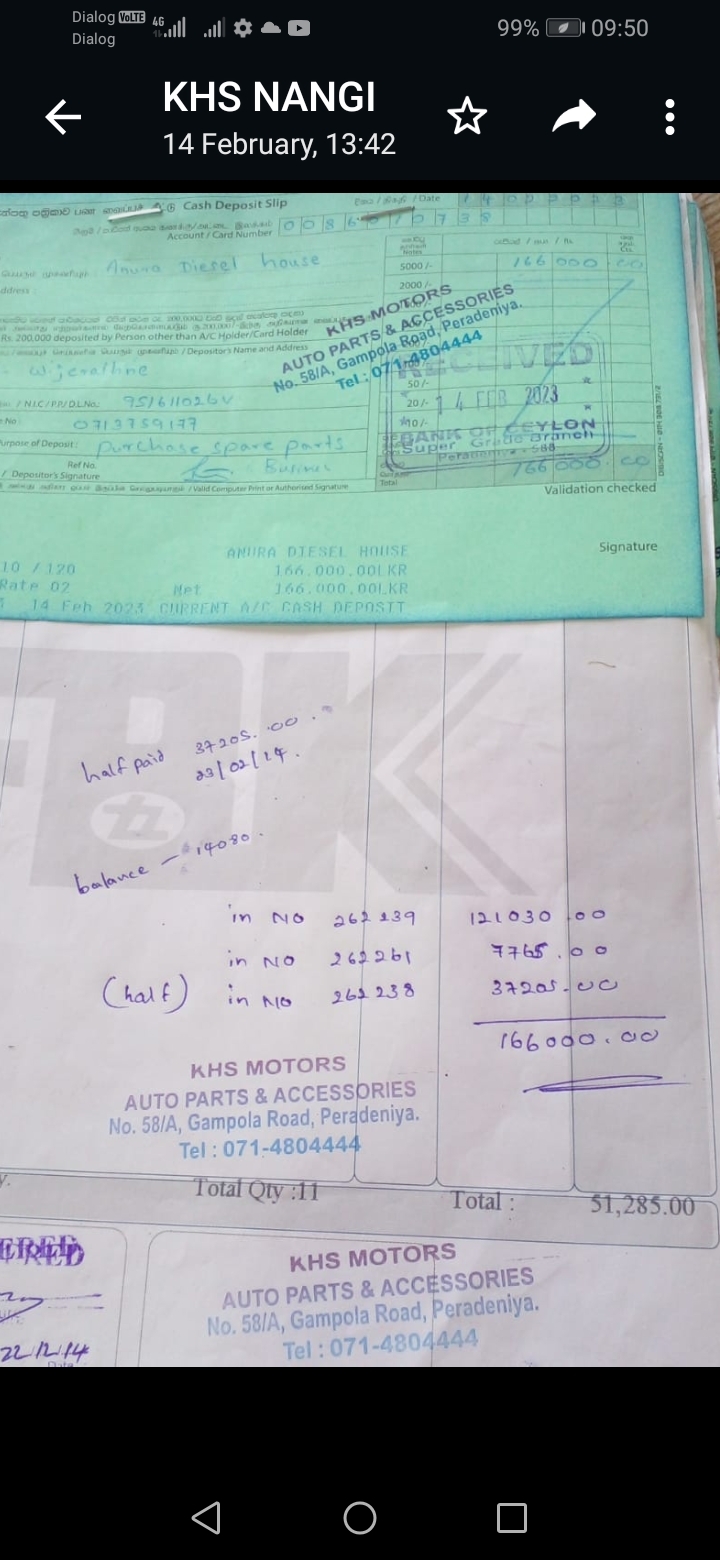 Dialog VoLTE 4G 99% 09:50
Dialog
KHS NANGI
14 February, 13:42
Cash Deposit Slip
/ Date 14022023
Account / Card Number 0086010738
Anura Diesel house
Notes
5000 /- 166 000 .00
2000 /-
Rs. 200,000 deposited by Person other than A/C Holder/Card Holder
/ Depositor's Name and Address
KHS MOTORS
AUTO PARTS & ACCESSORIES
No. 58/A, Gampola Road, Peradeniya.
Tel : 071-4804444
Wijerathne
RECEIVED
50 /-
/ N.I.C / P.P / D.L.No. : 951611026V
20 /- 14 FEB 2023
No : 0713759177
10 /-
BANK OF CEYLON
Super Grade Branch
Peradeniya - 588
Purpose of Deposit : purchase spare parts
Ref No.
/ Depositor's Signature
Total 166 000 .00
/ Valid Computer Print or Authorised Signature
Validation checked
ANURA DIESEL HOUSE
Signature
10 / 120 166,000.00LKR
Rate 02 Net 166,000.00LKR
14 Feb 2023 CURRENT A/C CASH DEPOSIT
half paid 37205.00
23/02/14.
balance - 14080.
in NO 262239 121030.00
in NO 262261 7765.00
(half) in NO 262238 37205.00
166000.00
KHS MOTORS
AUTO PARTS & ACCESSORIES
No. 58/A, Gampola Road, Peradeniya.
Tel : 071-4804444
Total Qty :11 Total : 51,285.00
KHS MOTORS
AUTO PARTS & ACCESSORIES
No. 58/A, Gampola Road, Peradeniya.
Tel : 071-4804444
22/12/14
Date